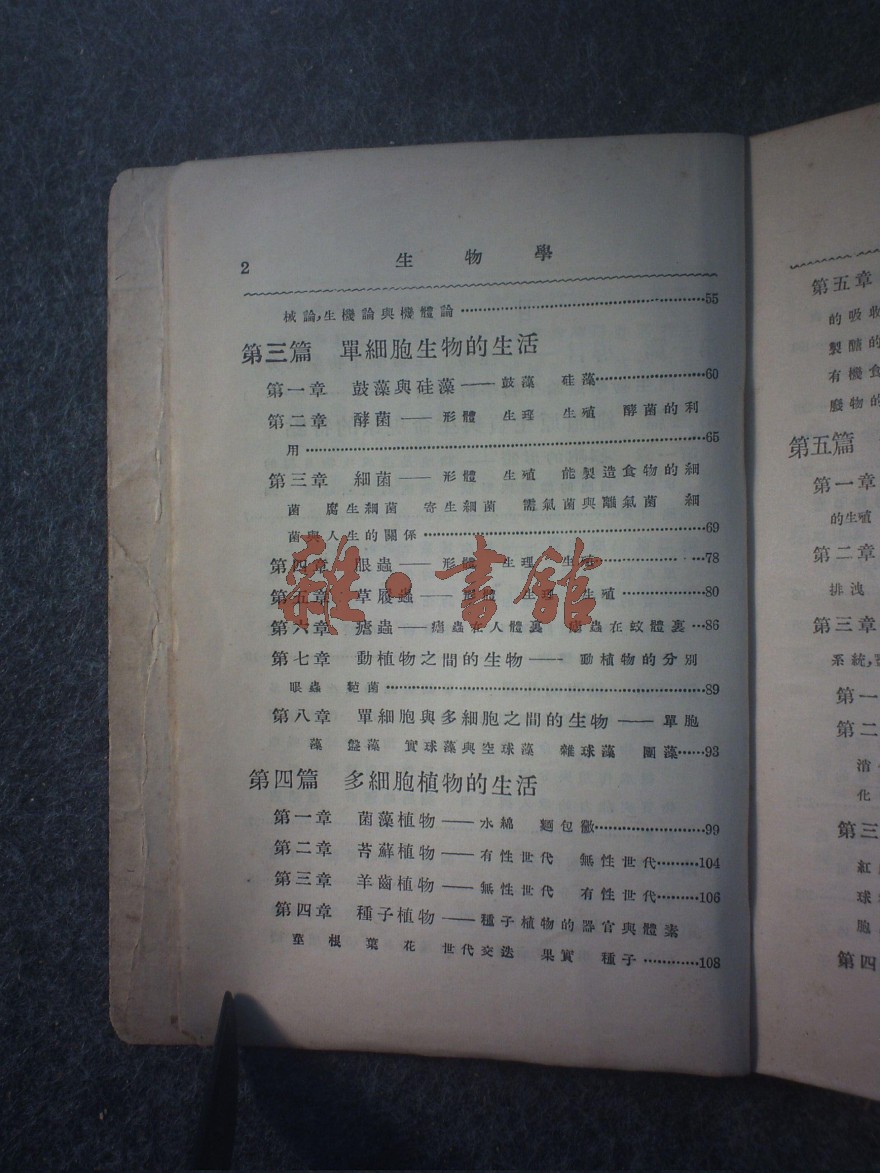 2 生物學
械論,生機論與機體論……55
第三篇 單細胞生物的生活
第一章 鼓藻與硅藻——鼓藻 硅藻……60
第二章 酵菌——形體 生理 生殖 酵菌的利
用……65
第三章 細菌——形體 生殖 能製造食物的細
菌 腐生細菌 寄生細菌 需氣菌與離氣菌 細
菌與人生的關係……69
第四章 眼蟲——形體 生理 生殖……78
第五章 草履蟲——形體 生理 生殖……80
第六章 瘧蟲——瘧蟲在人體裏 瘧蟲在蚊體裏…86
第七章 動植物之間的生物——動植物的分別
眼蟲 黏菌……89
第八章 單細胞與多細胞之間的生物——單胞
藻 盤藻 實球藻與空球藻 雜球藻 團藻……93
第四篇 多細胞植物的生活
第一章 菌藻植物——水綿 麵包黴……99
第二章 苔蘚植物——有性世代 無性世代……104
第三章 羊齒植物——無性世代 有性世代……106
第四章 種子植物——種子植物的器官與體素
莖 根 葉 花 世代交迭 果實 種子……108
雜·書館
第五章
的吸收
製醣的
有機食
廢物的
第五篇
第一章
的生殖
第二章
排洩
第三章
系統,
第一
第二
消
化
第三
紅
球
胞
第四